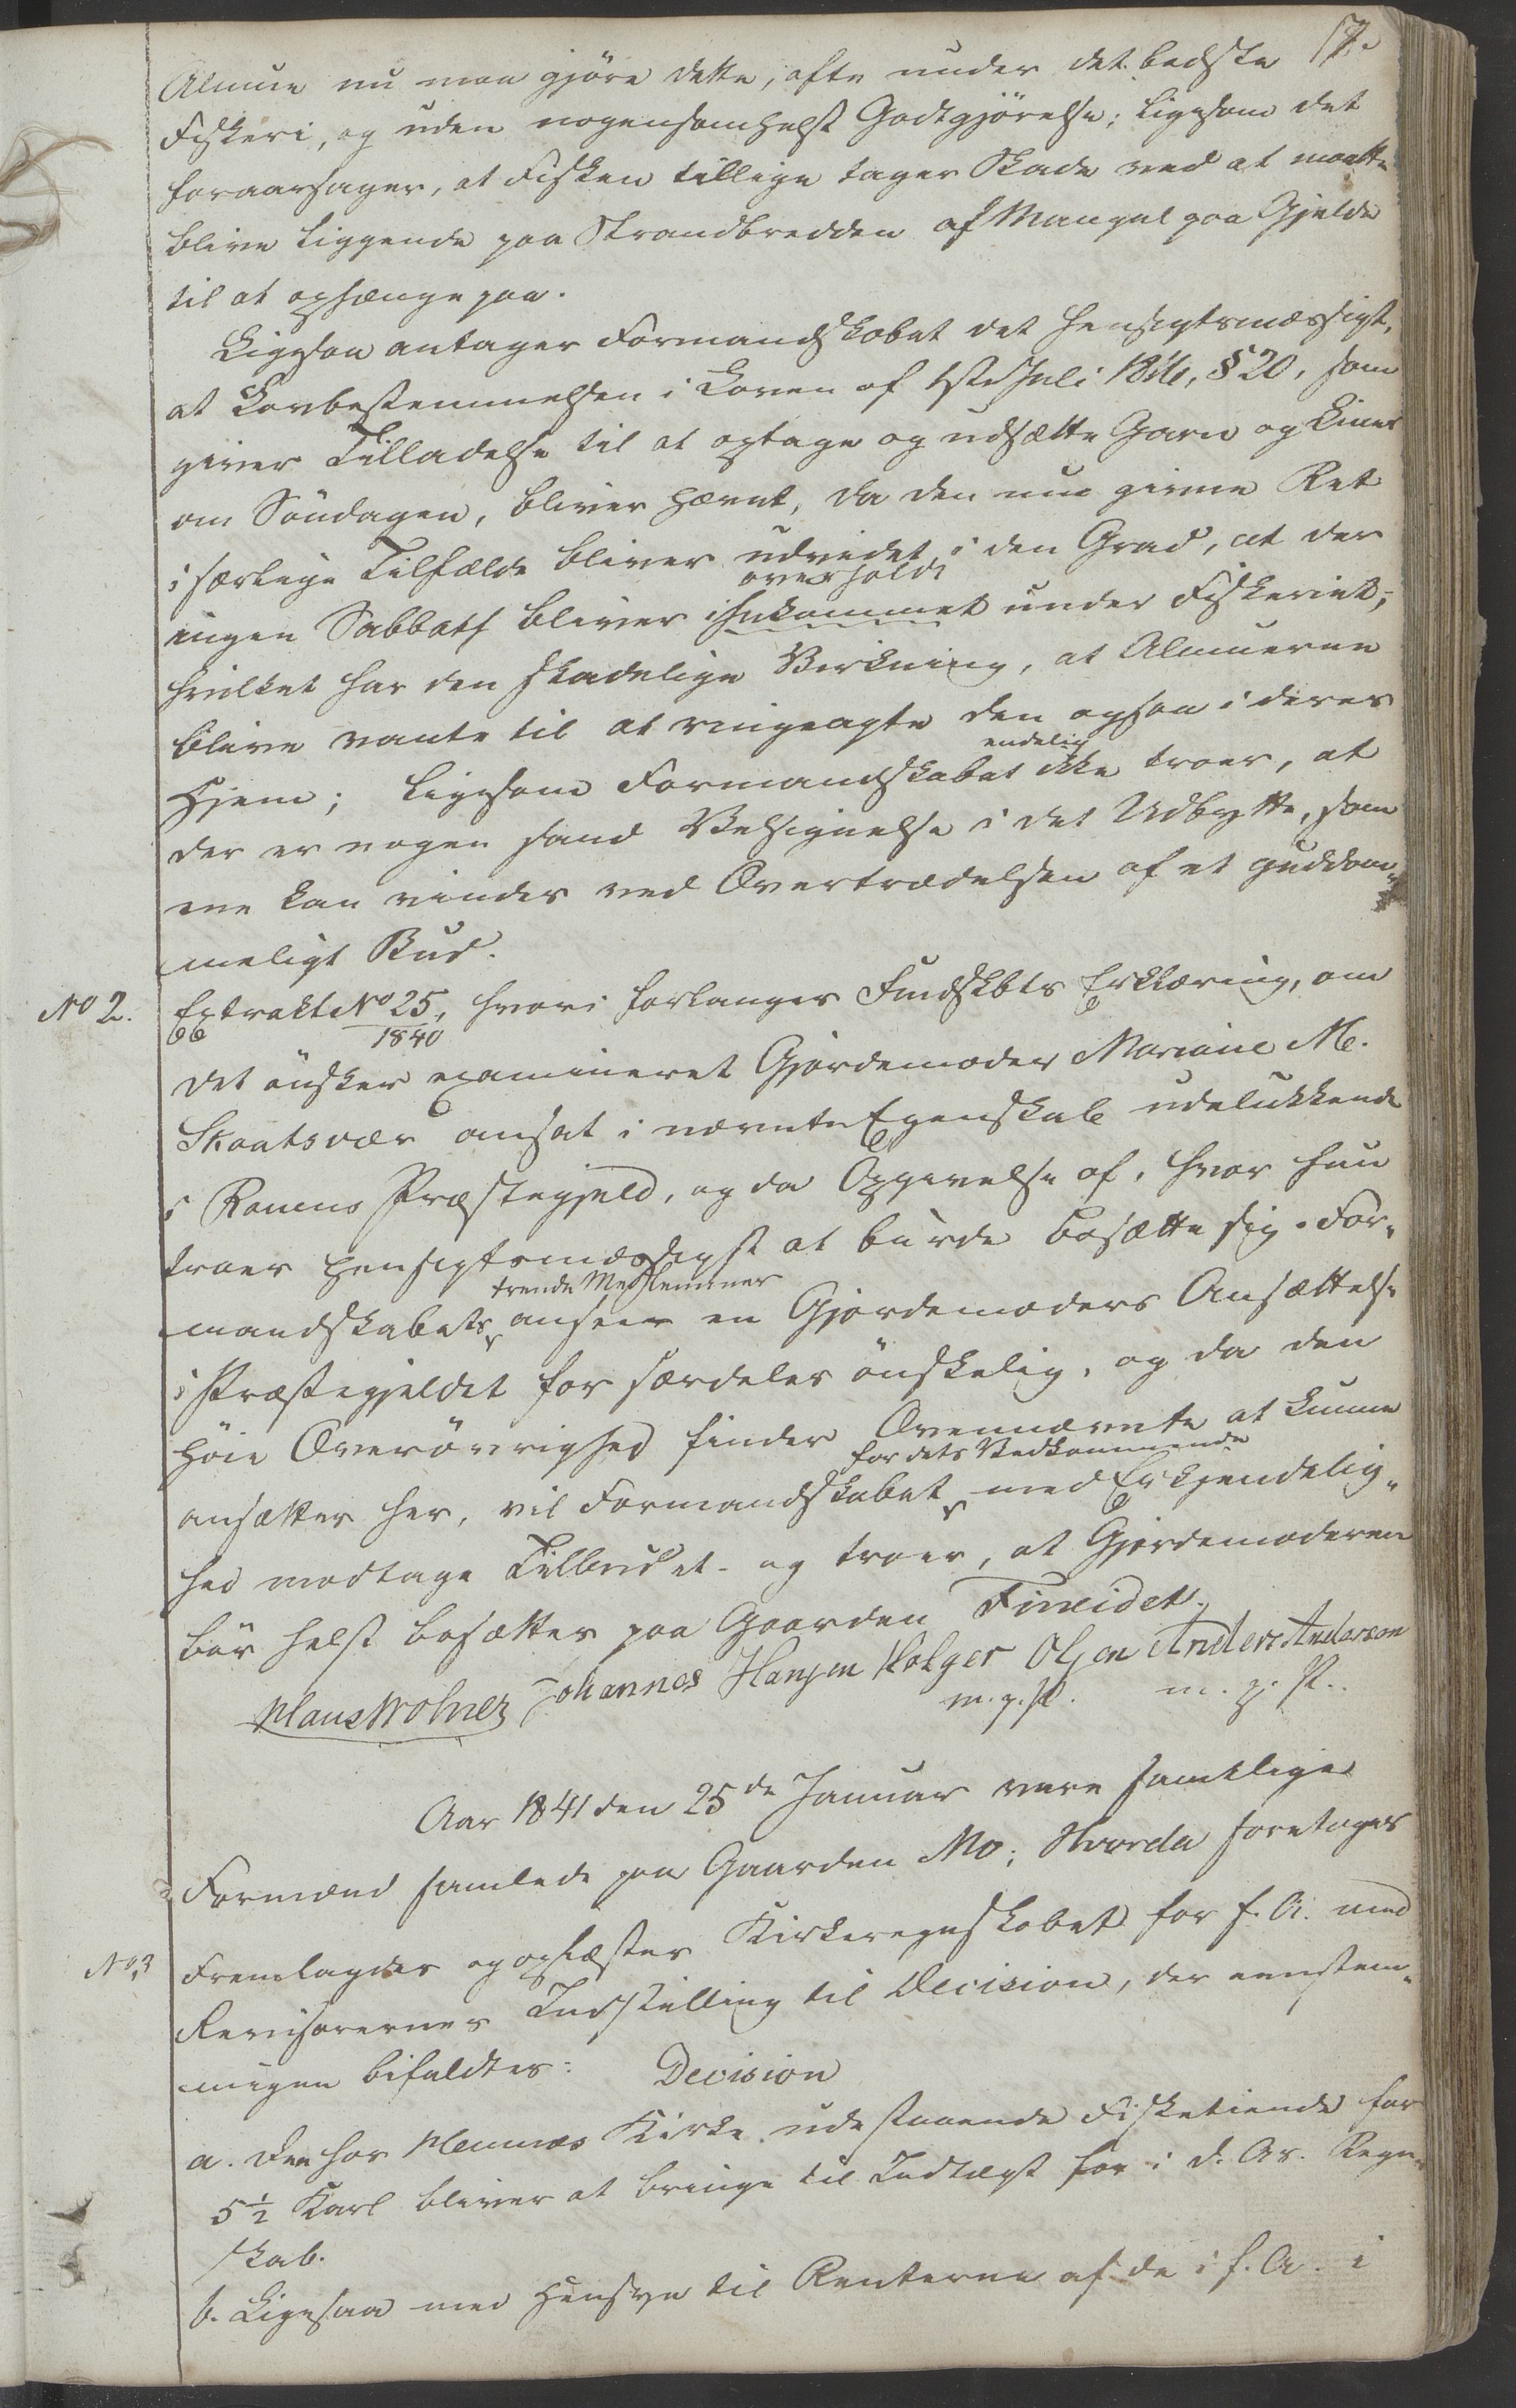 17.
Almue nu maa gjöre dette, ofte under det bedste
Fiskeri, og uden nogensomhelst Godtgjörelse; ligesom det
foraarsager, at Fisken tillige tager Skade ved at maatte
blive liggende paa Strandbredden af Mangel paa Gjelde
til at ophænge paa.
Ligesaa antager Formandskabet det hensigtsmæssigt,
at Lovbestemmelsen i Loven af 1ste Juli 1816, § 20, som
giver Tilladelse til at optage og udsætte Garn og Liner
om Söndagen, bliver hævet, da den nu givne Ret
i særlige Tilfælde bliver udvidet i den Grad, at der
overholdt
ingen Sabbath bliver ihukommet under Fiskeriet;
hvilket har den skadelige Virkning, at Almuerne
blive vante til at ringeagte den ogsaa i deres
endelig
Hjem; ligesom Formandskabet ikke troer, at
der er nogen sand Velsignelse i det Udbytte, som
ene kan vindes ved Overtrædelsen af et guddom-
meligt Bud.
No 2. Extrakt No 25, hvori forlanges Fmdskbts Erklæring, om
66 1840
det önsker examineret Gjordemoder Mariane M.
Skaatsvær ansat i nævnte Egenskab udelukkende
i Ranens Præstegjeld, og da Opgivelse af, hvor hun
troer hensigtsmæssigst at burde bosætte sig. For-
trende Medlemmer
mandskabets anseer en Gjordemoders Ansættelse
i Præstegjeldet for særdeles önskelig, og da den
höie Överövrighed finder Ovennævnte at kunne
for dets Vedkommende
ansættes her, vil Formandskabet med Erkjendelig-
hed modtage Tilbudet - og troer, at Gjordemoderen
bör helst bosættes paa Gaarden Fineidet.
Klaus Wolner Johannes Hansen Holger Olsen Anders Anderson
m. p. P. m. p. P.
Aar 1841 den 25de Januar vare samtlige
Formænd samlede paa Gaarden Mo; Hvorda foretoges
No 3 Fremlagdes og oplæstes Kirkeregnskabet for f. A. med
Revisorernes Indstilling til Decision, der eenstem-
migen bifaldtes: Decision
a. Den hos Nemnæs Kirke udestaaende Fisketiende for
5½ Karl bliver at bringe til Indtægt for i d. Ar. Regn-
skab.
b. Ligesaa med Hensyn til Renterne af de i f. A. i